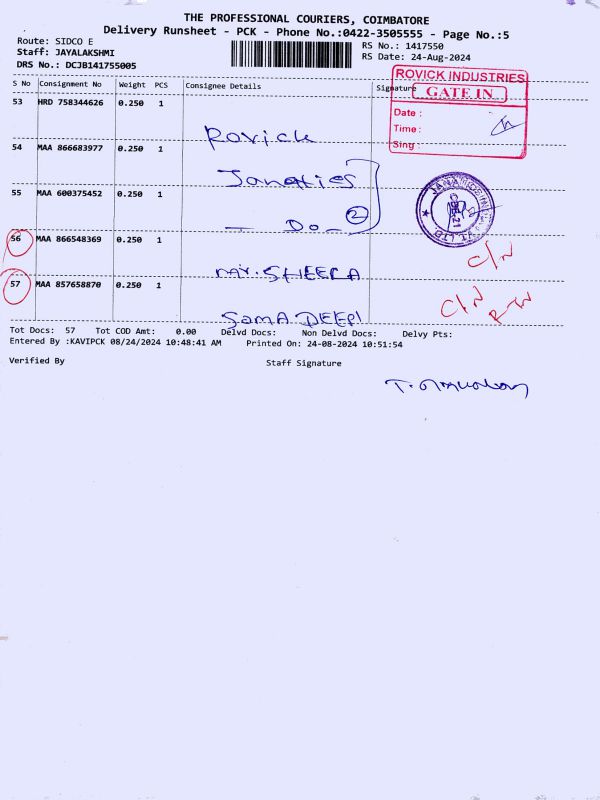 THE PROFESSIONAL COURIERS, COIMBATORE
Delivery Runsheet - PCK - Phone No.:0422-3505555 - Page No.:5
Route: SIDCO E
Staff: JAYALAKSHMI
DRS No.: DCJB141755005
RS No.: 1417550
RS Date: 24-Aug-2024
S No Consignment No Weight PCS Consignee Details Signature
ROVICK INDUSTRIES
GATE IN
Date :
Time :
Sing :
53 HRD 758344626 0.250 1
Rovick
54 MAA 866683977 0.250 1
Janatics
55 MAA 600375452 0.250 1
— Do — 2
56 MAA 866548369 0.250 1
C/N
57 MAA 857658870 0.250 1
C/N
SamA DEEPI
Tot Docs: 57 Tot COD Amt: 0.00 Delvd Docs: Non Delvd Docs: Delvy Pts:
Entered By :KAVIPCK 08/24/2024 10:48:41 AM Printed On: 24-08-2024 10:51:54
Verified By Staff Signature